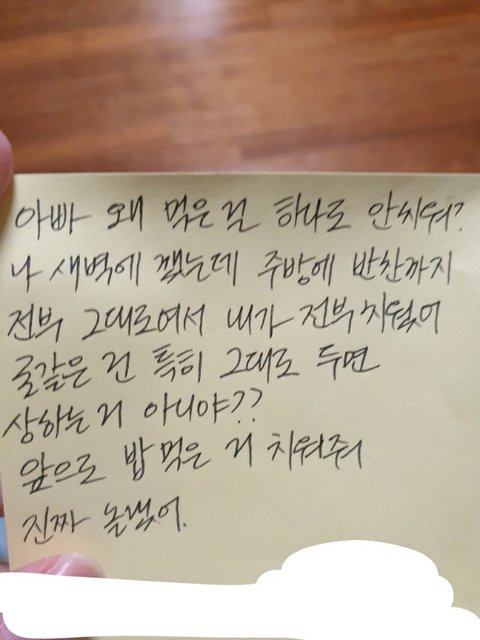 아빠 왜 먹은걸 하나도 안치워?
나 새벽에 깼는데 주방에 반찬까지
전부 그대로여서 내가 전부 치웠어
굴같은 건 특히 그대로 두면
상하는거 아니야??
앞으로 밥 먹은 거 치워줘
진짜 놀랬어.